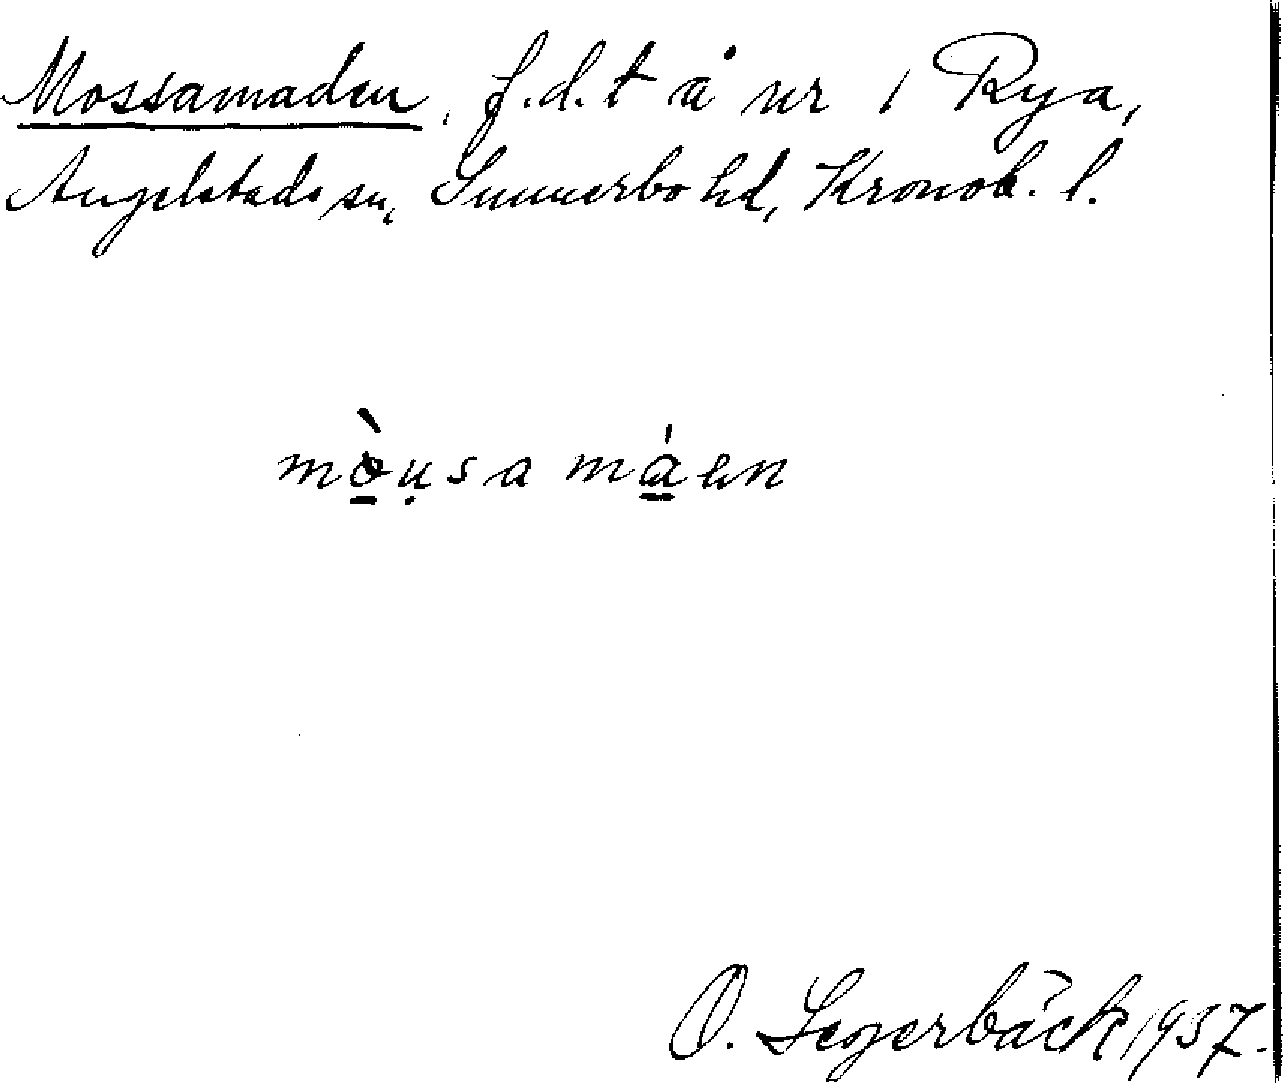 Mossamaden, f.d.t å nr 1 Rya,
Angelstads sn, Sunnerbo hd, Kronob. l.
mò̲u̥sa má̲en
O. Segerbäck 1957.